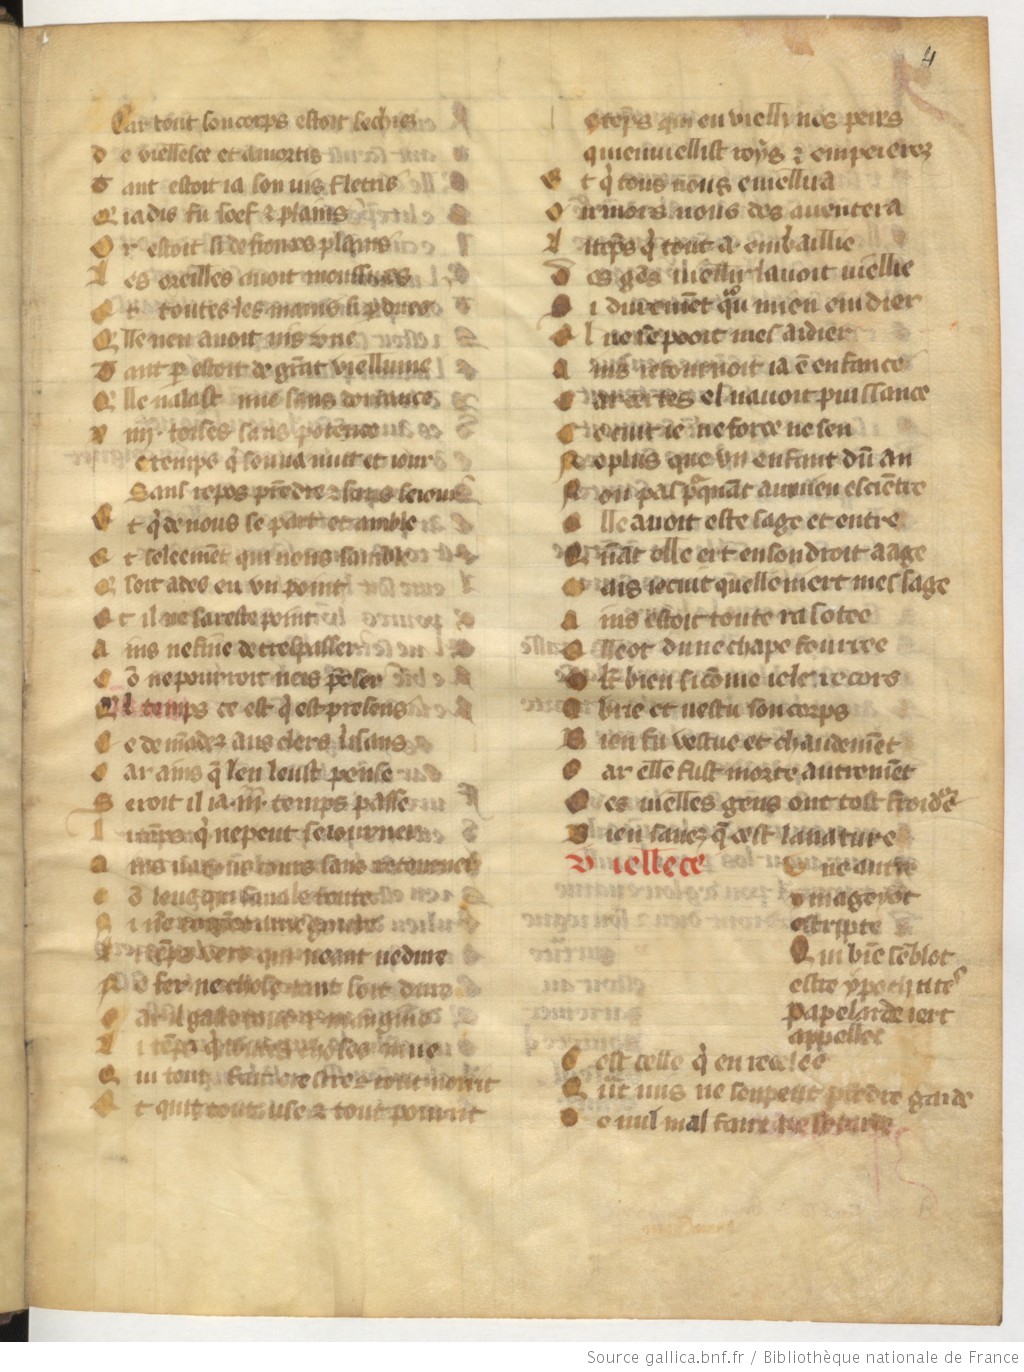 4
Car tout son corps estoit sechis
de viellesce et amortis
Tant estoit ia son vis fletris
Q iadis fu soef & plains
Or estoit si de fronces plains
Les oreilles avoit moussues
Et toutes les mains si pdues
Qlle nen avoit mis vne
Tant p estoit de grat viellune
Qlle nalast mie sans
iiij. toises sans potence
e temps q sen va nuit et iour
Sans repos prendre & sans seiour
Et q de nous se part et amble
Et seleement qui nous samble
Q soit ades en vn point
Et il ne sareste point
Ains ne fine de trespasser
C õ ne pourroit neis peser
Ql temps ce est q est presens
Ce demadez aus clers lisans
Car ains q len leust pense
Seroit il ia .iij. temps passe
Li teps q ne peut seiourner
Ains va tous iours sans retourner
Li teps vers qui neant ne dure
Ne fer ne chose tant soit dure
Car il gaste tout & mangiue
Li teps q toutes choses mue
Qui tout fait croistre & tout norrit
Et qui tout use & tout pourrit
e teps qui en vielli nos peres
qui enviellist roys & empererez
Et q tous nous enviellira
Ou mors nous des aventera
Li teps q tout a en baillie
Des ges viellir lavoit viellie
Si durement quau mien cuidier
El ne se pooit mes aidier
Ains retournoit ia e enfance
Car certes el navoit puissance
Ce cuit ie ne force ne sen
Ne plus que vn enfant du an
Non pas pquat au mien esciettre
Elle avoit este sage et entre
Quat elle ert en son droit aage
Mais ie cuit quelle niert mes sage
Ains estoit toute rasotee
Elle ot dune chape fourree
Mlt bien si come ie le recors
Abrie et vestu son corps
Bien fu vestue et chaudemet
Car elle fust morte autremet
Ces vielles gens ont tost froidure
Bien savez q cest la nature
Viellece Une autre
ymage yot
estripte
Qui bie seblot
estre ypocrite
Papelardie iert
appellee
Cest celle q en recelee
Qut nus ne sen peut prendre garde
De nul mal faire ne se tarde
Source gallica.bnf.fr / Bibliothèque nationale de France